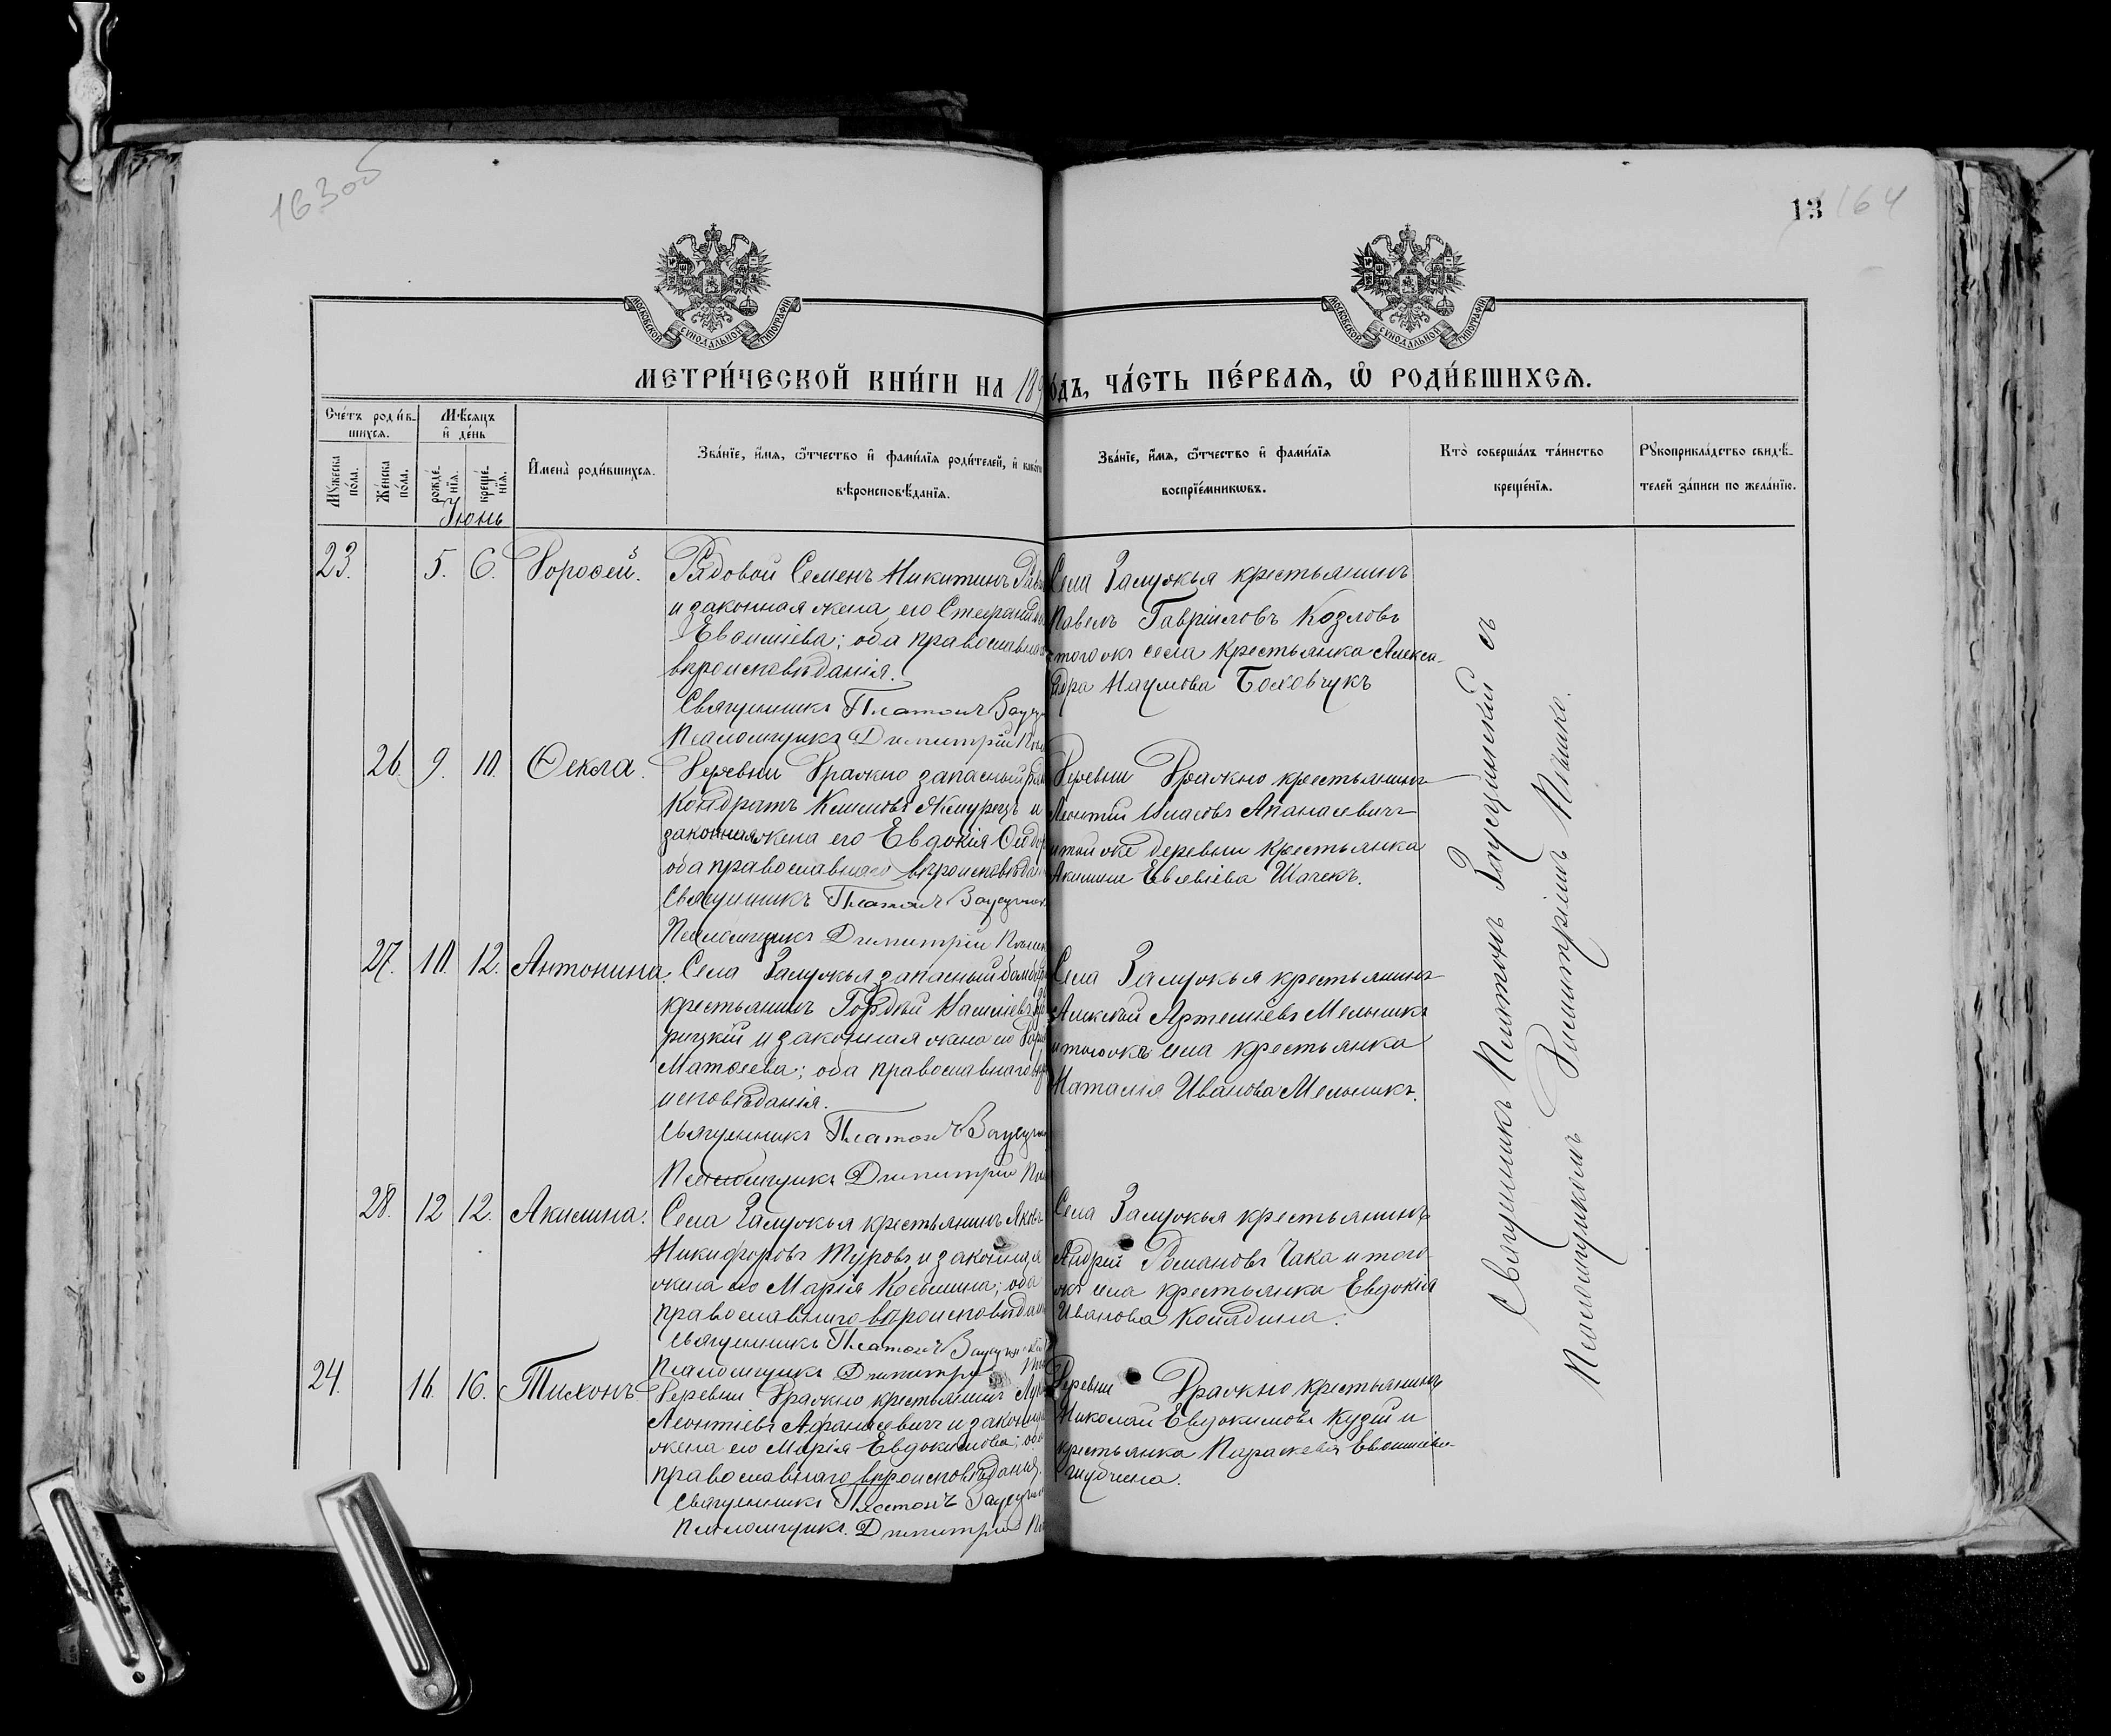 163об
13 164
МОСКОВСКОЙ СѴНОДАЛЬНОЙ ТИПОГРАФІИ
МОСКОВСКОЙ СѴНОДАЛЬНОЙ ТИПОГРАФІИ
МЕТРИ́ЧЕСКОЙ КНИ́ГИ НА 189
о́дъ, ЧА́СТЬ ПЕ́РВАЯ, Ѽ РОДИ́ВШИХСЯ.
Сче́тъ роди́в-
шихся.
Мѣ́сяцъ
и҆ де́нь
Мꙋ́жеска по́ла.
Же́нска по́ла.
рожде́-
нїя.
креще́-
нїя.
И҆мена̀ роди́вшихся.
Зва́нїе, и҆́мя, ѻ҆́тчество и҆ фами́лїя роди́телей, и҆
вѣроисповѣ́данїя.
Зва́нїе, и҆́мя, ѻ҆́тчество и҆ фами́лїя
воспрїе́мникѡвъ.
Кто̀ соверша́лъ та́инство
креще́нїя.
Рꙋкоприкла́дство свидѣ́-
телей за́писи по жела́нїю.
Іюнь
23. 5. 6. Дорофей.
Рядовой Семенъ Никитинъ
и законная жена его Стефанида
Евфимiева; оба православна
вѣроисповѣданія.
Священникъ Платонъ
Псаломщикъ Димитрій
Села Залужья крестьянинъ
Павелъ Гавріиловъ Козловъ
тогожъ села крестьянка Алекса-
ндра Наумова
26. 9. 10. Ѳекла.
Деревни Дражно запасный
Кондратъ Климовъ и
законная жена его Евдокія Сидо
оба православнаго вѣроисповѣдан
Священникъ Платонъ
Псаломщикъ Димитрій
Деревни Дражно крестьянинъ
Леонтій Власовъ Апанасевичъ
и той же деревни крестьянка
Акилина Евсевіева Шачекъ.
27. 10. 12. Антонина.
Села Залужья запасный бомб
крестьянинъ Гордій
и законная жена его
Матѳеева; оба православнаго
исповѣданія.
Священникъ Платонъ
Псаломщикъ Димитрій
Села Залужья крестьянинъ
Алексѣй Артеміевъ Мельникъ
и тогожъ села крестьянка
Наталія Иванова Мельникъ.
28. 12 12. Акилина.
Села Залужья крестьянинъ Яковъ
Никифоровъ Туровъ и законная
жена его Марія Косьмина; оба
православнаго вѣроисповѣдан
Священникъ Платонъ
Псаломщикъ Димитрій
Села Залужья крестьянинъ
Андрей Романовъ Чака и того-
жъ села крестьянка Евдокія
Иванова
24. 16. 16. Тихонъ.
Деревни Дражно крестьянинъ
Леонтіевъ Афанасевичъ и законная
жена его Марія Евдокимова; оба
православнаго вѣроисповѣданія.
Священникъ Платонъ
Псаломщикъ Димитрій
Деревни Дражно крестьянинъ
Николай Евдокимовъ Кузій и
крестьянка Параскева Евфиміева
Священникъ Платонъ Заусцинскій съ
Псаломщикомъ Димитріемъ